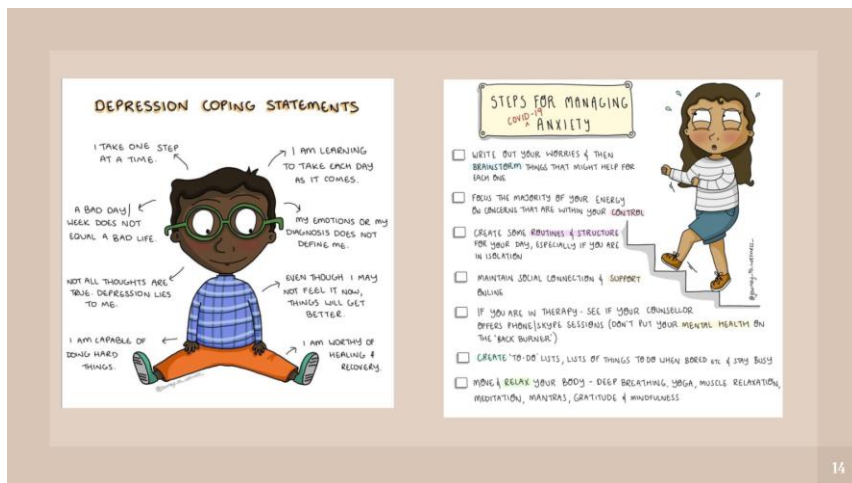 DEPRESSION COPING STATEMENTS
I TAKE ONE STEP
AT A TIME.
I AM LEARNING
TO TAKE EACH DAY
AS IT COMES.
A BAD DAY/
WEEK DOES NOT
EQUAL A BAD LIFE.
MY EMOTIONS OR MY
DIAGNOSIS DOES NOT
DEFINE ME.
NOT ALL THOUGHTS ARE
TRUE. DEPRESSION LIES
TO ME.
EVEN THOUGH I MAY
NOT FEEL IT NOW,
THINGS WILL GET
BETTER.
I AM CAPABLE OF
DOING HARD
THINGS.
I AM WORTHY OF
HEALING &
RECOVERY.
STEPS FOR MANAGING
COVID-19
ANXIETY
WRITE OUT YOUR WORRIES & THEN
BRAINSTORM THINGS THAT MIGHT HELP FOR
EACH ONE
FOCUS THE MAJORITY OF YOUR ENERGY
ON CONCERNS THAT ARE WITHIN YOUR CONTROL
CREATE SOME ROUTINES & STRUCTURE
FOR YOUR DAY, ESPECIALLY IF YOU ARE
IN ISOLATION
MAINTAIN SOCIAL CONNECTION & SUPPORT
ONLINE
IF YOU ARE IN THERAPY - SEE IF YOUR COUNSELLOR
OFFERS PHONE/SKYPE SESSIONS (DON'T PUT YOUR MENTAL HEALTH ON
THE 'BACK BURNER')
CREATE 'TO-DO' LISTS, LISTS OF THINGS TO DO WHEN BORED ETC & STAY BUSY
MOVE & RELAX YOUR BODY - DEEP BREATHING, YOGA, MUSCLE RELAXATION,
MEDITATION, MANTRAS, GRATITUDE & MINDFULNESS
14